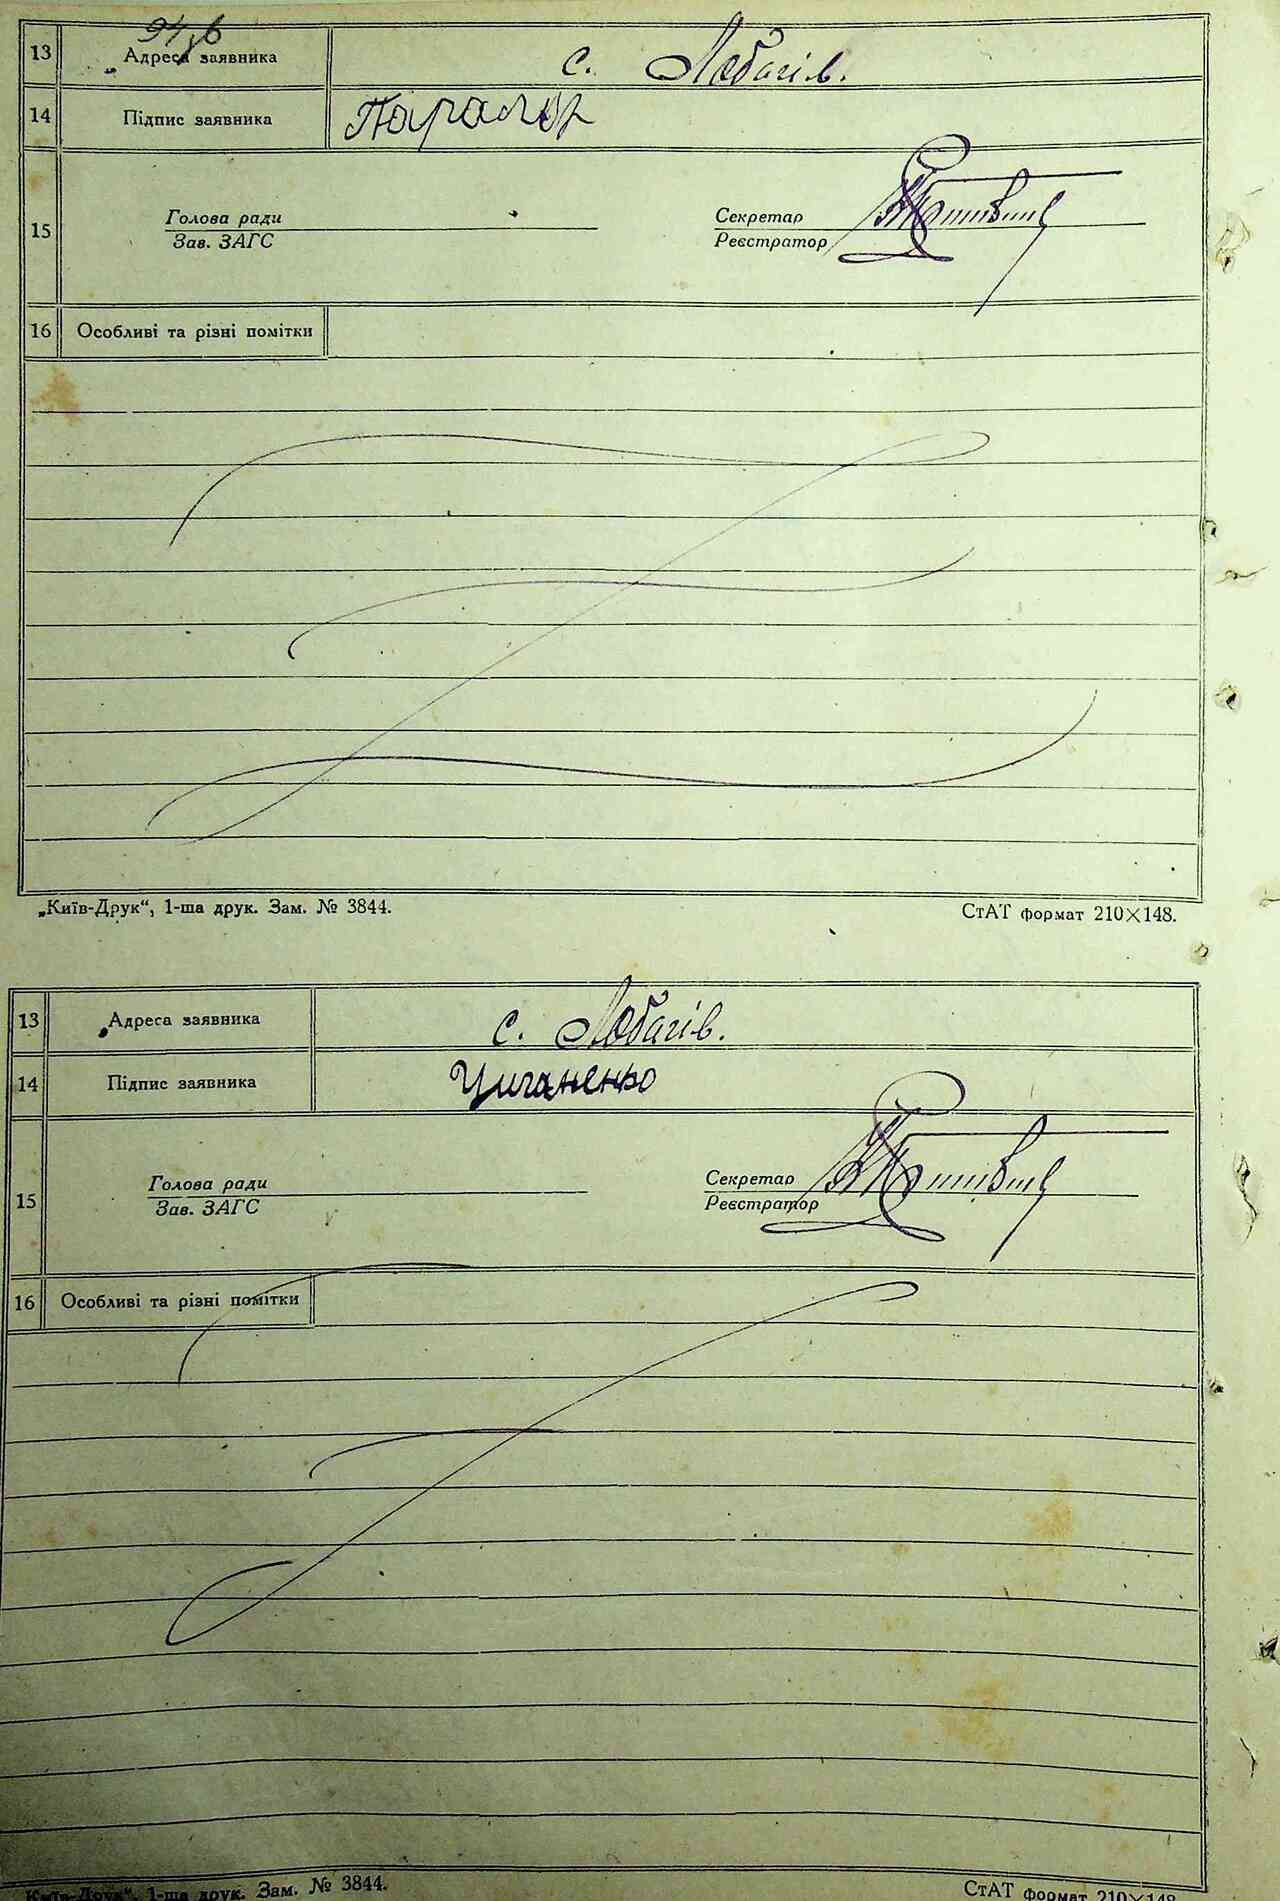 94
13 Адреса заявника с. Лобачів.
14 Підпис заявника
15 Голова ради Секретар
Зав. ЗАГС Реєстратор
16 Особливі та різні помітки
„Київ-Друк“, 1-ша друк. Зам. № 3844. СтАТ формат 210×148.
13 Адреса заявника с. Лобачів.
14 Підпис заявника Циганенко
15 Голова ради Секретар
Зав. ЗАГС Реєстратор
16 Особливі та різні помітки
„Київ-Друк“, 1-ша друк. Зам. № 3844. СтАТ формат 210×148.